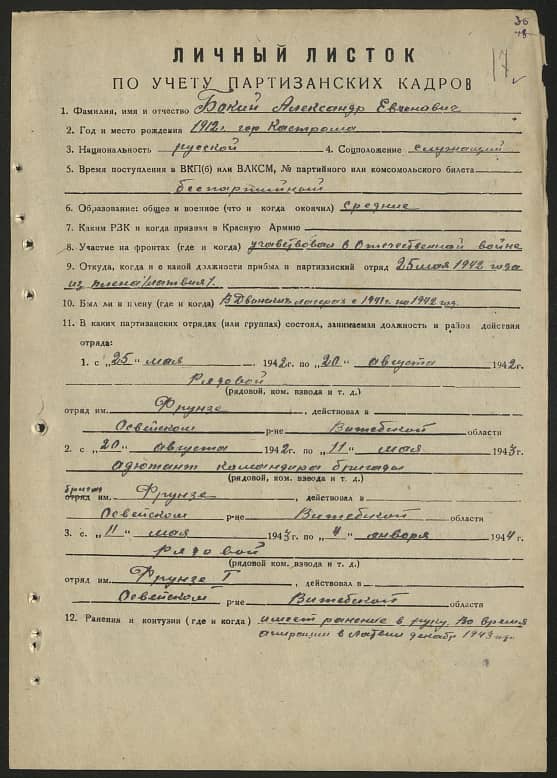 36
18
17
ЛИЧНЫЙ ЛИСТОК
ПО УЧЕТУ ПАРТИЗАНСКИХ КАДРОВ
1. Фамилия, имя и отчество Бокий Александр Евгенович
2. Год и место рождения 1912 г. гор Кострома
3. Национальность русской 4. Соцположение служащий
5. Время поступления в ВКП(б) или ВЛКСМ, № партийного или комсомольского билета
беспартийный
6. Образование: общее и военное (что и когда окончил) среднее
7. Каким РЗК и когда призван в Красную Армию
8. Участие на фронтах (где и когда) участвовал в Отечественной войне
9. Откуда, когда и с какой должности прибыл в партизанский отряд 25 мая 1942 года
из плена /латвия/.
10. Был ли в плену (где и когда) В Двинских лагерах с 1941 г. по 1942 год.
11. В каких партизанских отрядах (или группах) состоял, занимаемая должность и район действия
отряда:
1. с „25" мая 1942г. по „20" августа 1942г.
Рядовой
(рядовой, ком. взвода и т. д.)
отряд им. Фрунзе, действовал в
Освейском р-не Витебской области
2. с „20" августа 1942г. по „11" мая 1943г.
адютант командира бригады
(рядовой, ком. взвода и т. д.)
бригад
отряд им. Фрунзе, действовал в
Освейском р-не Витебской области
3. с. „11" мая 1943г. по „4" января 1944г.
рядовой
(рядовой, ком. взвода и т. д.)
отряд им. Фрунзе, действовал в
Освейском р-не Витебской области
12. Ранения и контузии (где и когда) имеет ранение в руку. Во время
операции в Латвии декабр 1943 г.